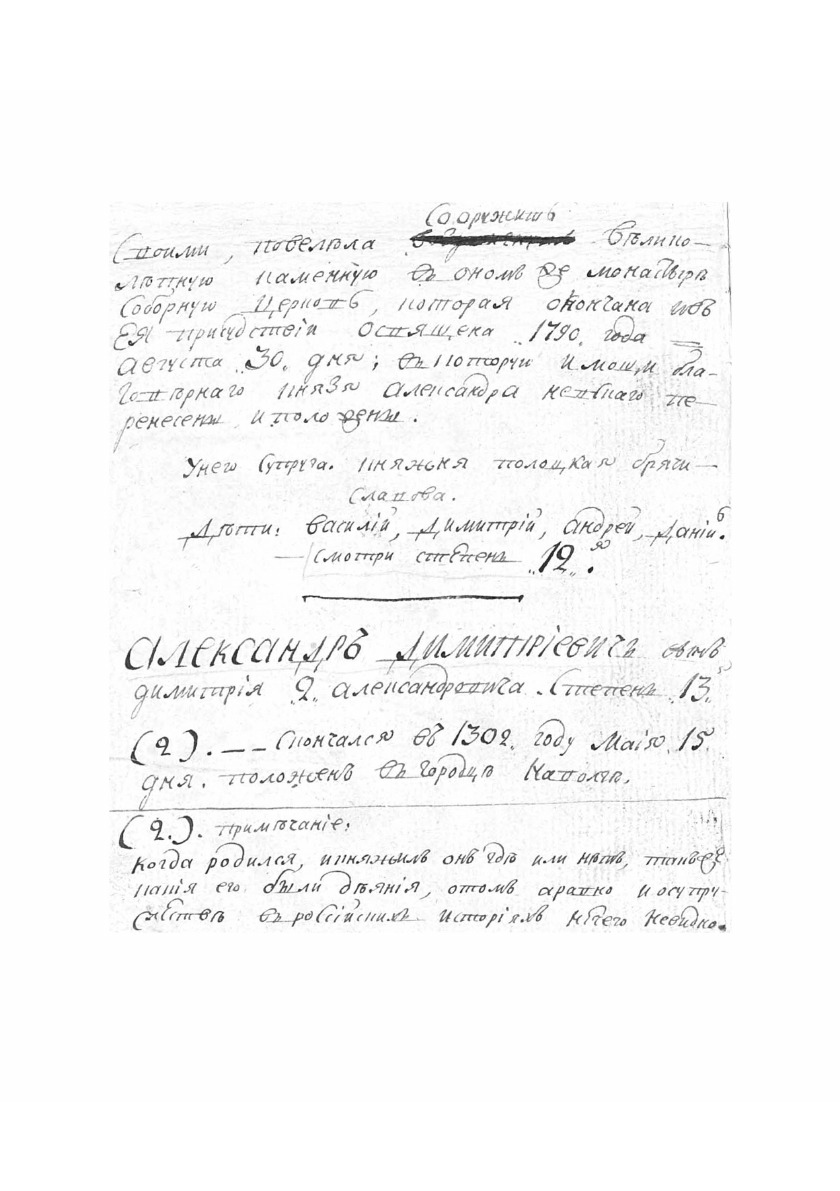 Сооружить
Своими, повелѣла вѣлико-
лѣпную каменную въ ономъ же монастырѣ
Соборную Церковь, которая окончана и въ
ЕЯ присудствіи Освящена „1790„ года =
августа „30„ дня; въ которую и мощи бла-
говѣрнаго князя александра невскаго пе-
ренесены и положены.
Унего Супруга. княжня полоцкая брячи-
славова.
Дѣти: василій, Димитрій, андрей, Даніи.
— смотри степень „12„.
АЛЕКСАНДРЪ ДИМИТРІЕВИЧЪ
димитрія „2„ александровича. Степень „13„
(2). — — Скончался въ 1302. году Маія „15„
дня. положенъ въ городцѣ
(2.). примѣчаніе:
когда родился, икняжилъ онъ гдѣ или нѣтъ, также
какія его были дѣянія, отомъ
въ россійскихъ исторіяхъ ничего невидно.